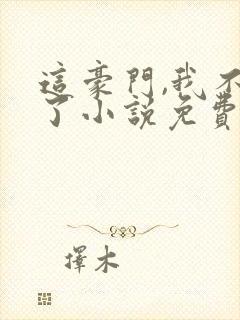 這豪門,我不
了小說免費
擇木